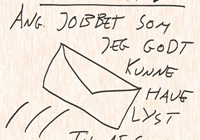 ANG. JOBBET SOM
JEG GODT
KUNNE
HAVE
LYST